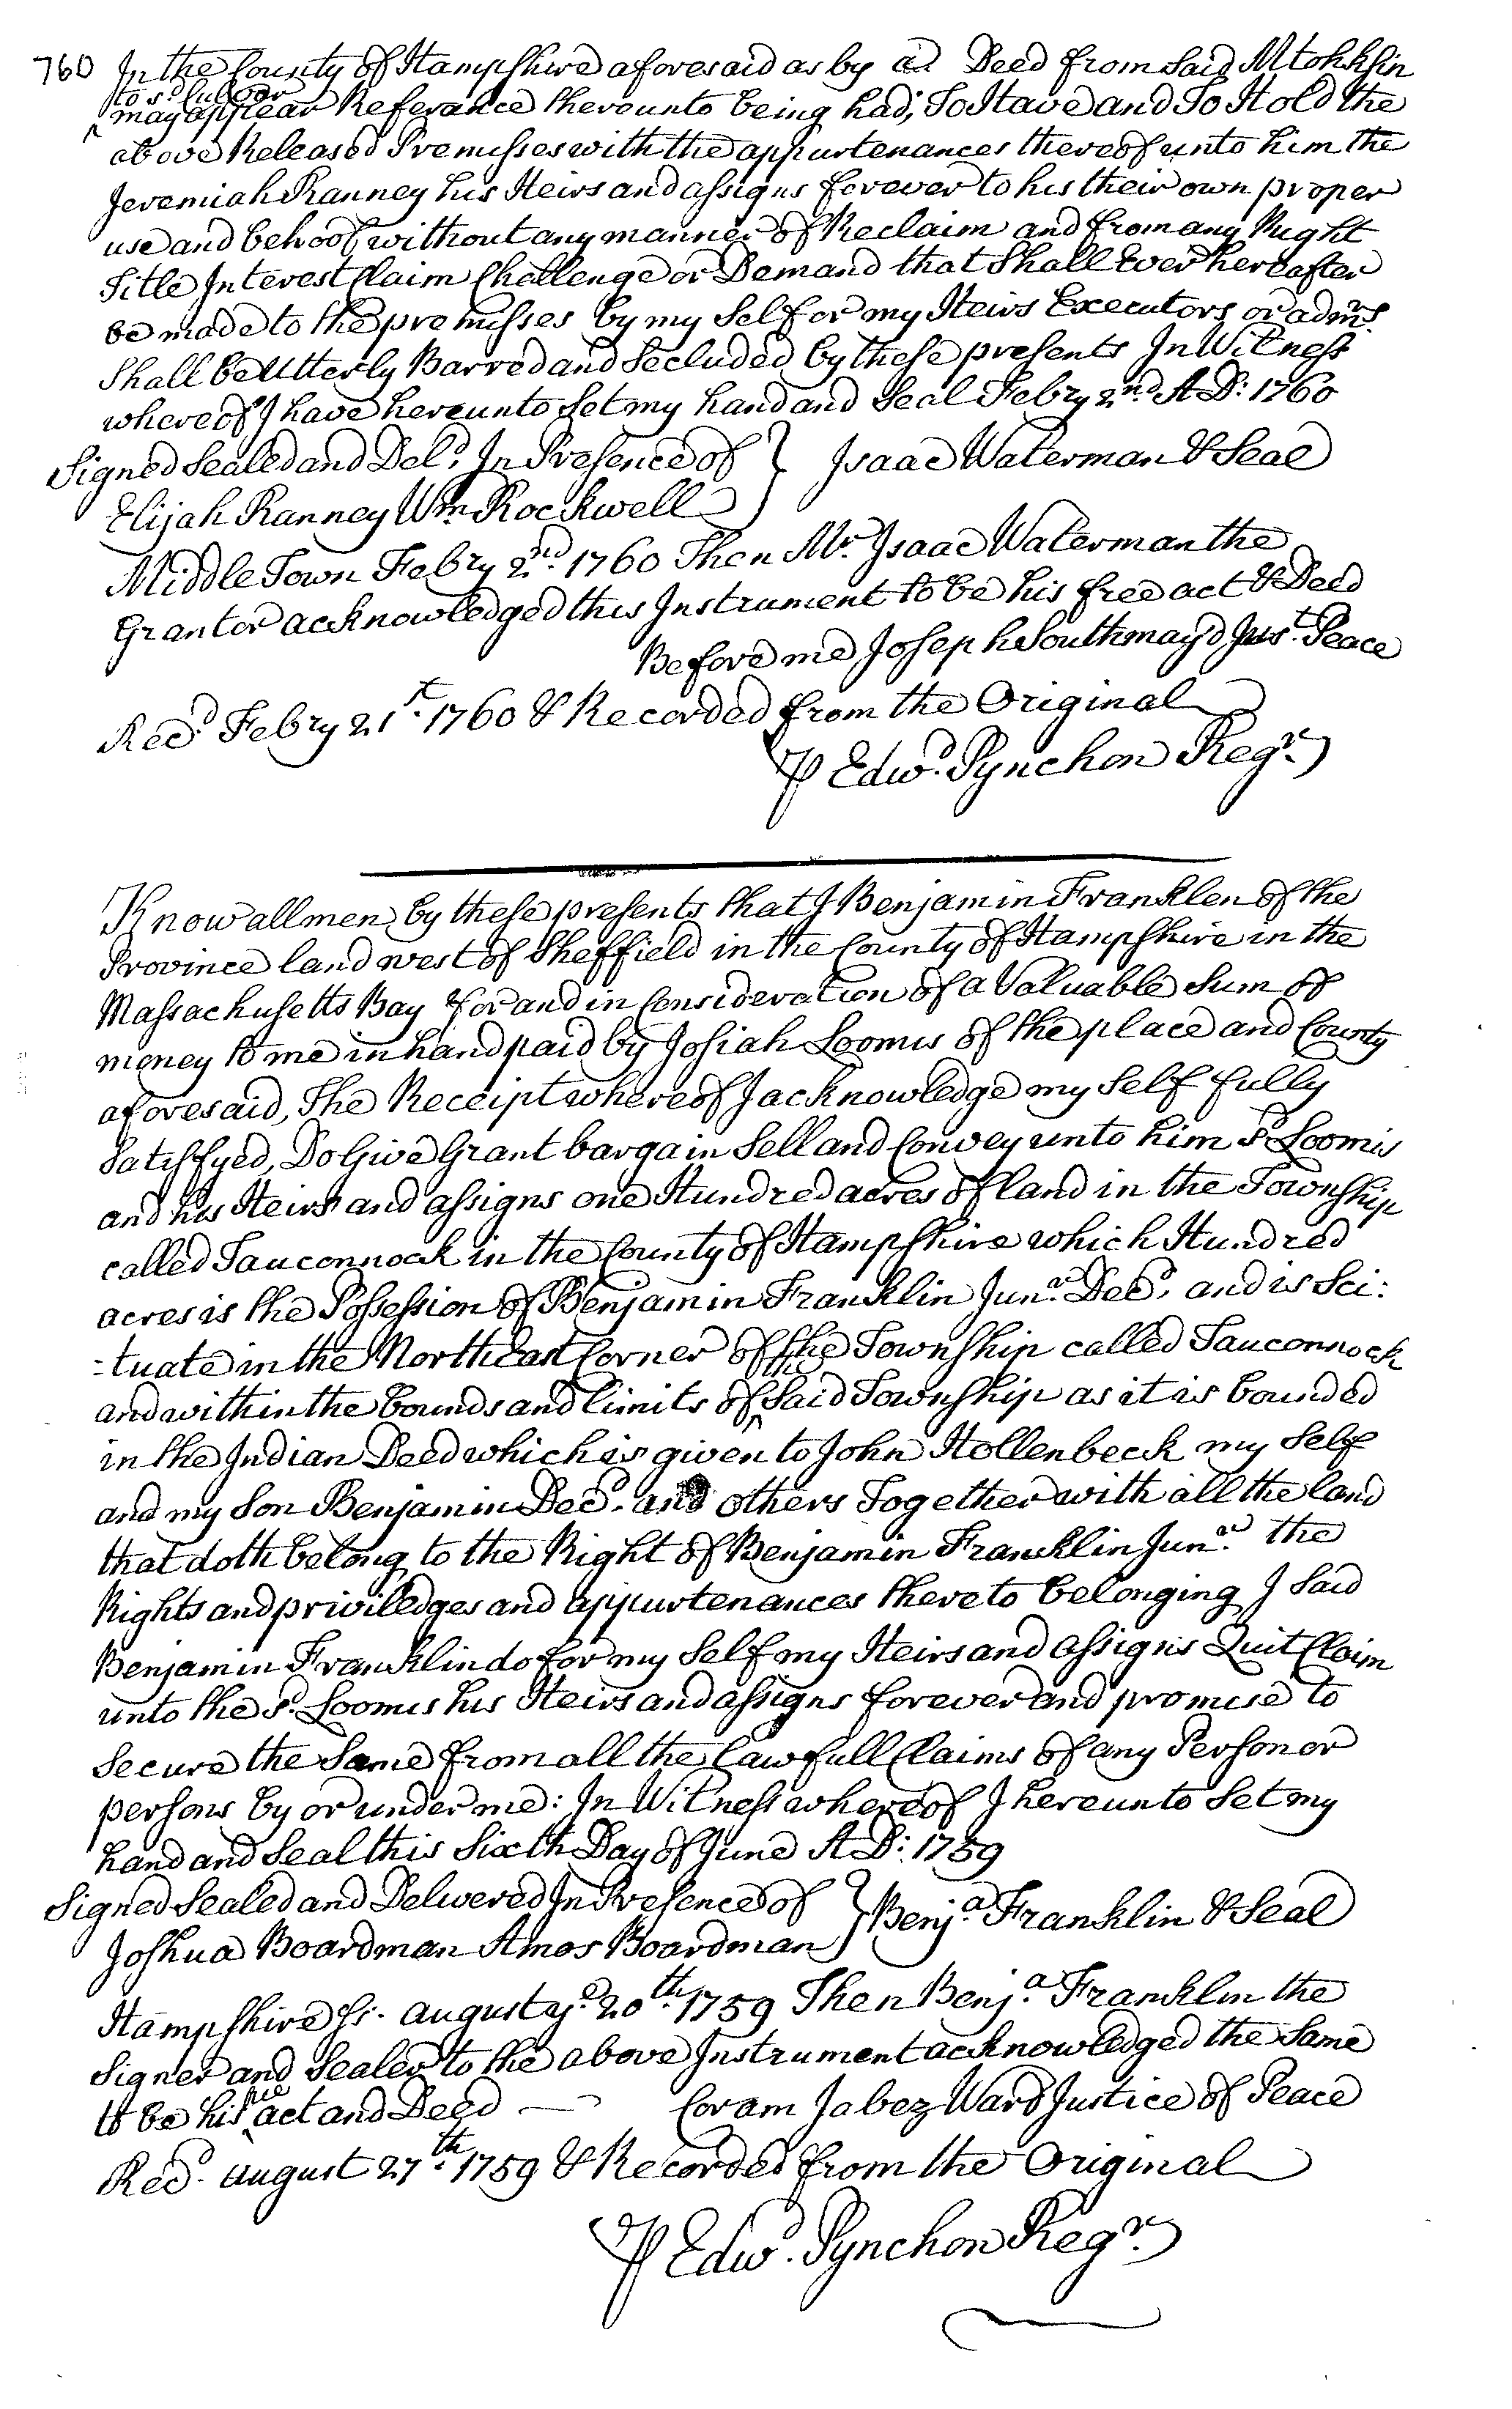 760 In the County of Hampshire aforesaid as by a Deed from Said Mtohksin
to sd. Culver
may appear Referance thereunto being had; To Have and To Hold the
above Released Premisses with the appurtenances thereof unto him the
Jeremiah Ranney his Heirs and assigns forever to his their own proper
use and behoof without any manner of Reclaim and from any Right
Title Interest Claim Challenge or Demand that Shall Ever hereafter
be made to the premisses by my Self or my Heirs Executors or admrs.
Shall be Utterly Barred and Secluded by these presents In Witness
whereof I have hereunto Set my hand and Seal Febry 2nd. A D: 1760
Signed Sealed and Deld. In Presence of } Isaac Waterman & Seal
Elijah Ranney Wm. Rockwell
Middle Town Febry 2nd. 1760 Then Mr. Isaac Waterman the
Grantor acknowledged this Instrument to be his free act & Deed
Before me Joseph Southmayd Just. Peace
Recd. Febry 21st. 1760 & Recorded from the Original
⅌ Edwd. Pynchon Regr.
Know all men by these presents that I Benjamin Franklen of the
Province land west of Sheffield in the County of Hampshire in the
Massachusetts Bay for and in Consideration of a Valuable Sum of
money to me in hand paid by Josiah Loomis of the place and County
aforesaid, The Receipt whereof I acknowledge my Self fully
Satisfyed, Do Give Grant bargain Sell and Convey unto him sd. Loomis
and his Heirs and assigns one Hundred acres of land in the Township
called Tauconnock in the County of Hampshire which Hundred
acres is the Possession of Benjamin Franklin Junr. Decd. and is Sci:
-tuate in the North East Corner of the Township called Tauconnock
and within the bounds and limits of the Said Township as it is bounded
in the Indian Deed which is given to John Hollenbeck my Self
and my Son Benjamin Decd. and others Together with all the land
that doth belong to the Right of Benjamin Francklin Junr. the
Rights and priviledges and appurtenances thereto belonging I Said
Benjamin Franklin do for my Self my Heirs and assigns Quit Claim
unto the sd. Loomis his Heirs and assigns forever and promise to
Secure the Same from all the Lawfull Claims of any Person or
persons by or under me: In Witness whereof I hereunto Set my
hand and Seal this Sixth Day of June A D: 1759
Signed Sealed and Delivered In Presence of } Benja. Franklin & Seal
Joshua Boardman Amos Boardman
Hampshire Ss. august ye. 20th. 1759 Then Benja. Franklin the
Signer and Sealer to the above Instrument acknowledged the Same
to be his free act and Deed — Coram Jabez Ward Justice of Peace
Recd. august 27th. 1759 & Recorded from the Original
⅌ Edwd. Pynchon Regr.